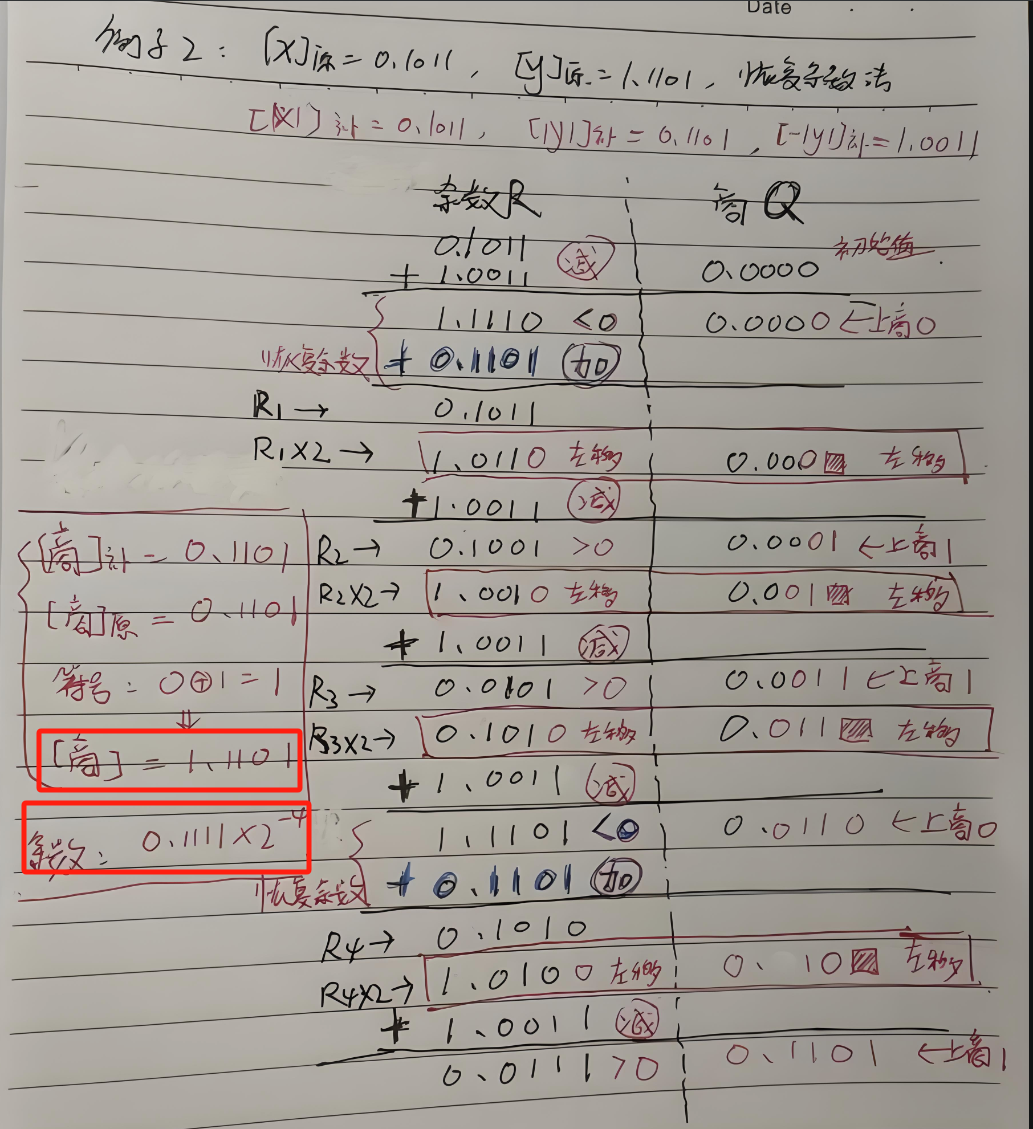 Date
例子2: [X]原=0.1011, [y]原=1.1101, 恢复余数法
[|X|]补=0.1011, [|y|]补=0.1101, [-|y|]补=1.0011
余数R 商Q
0.1011 初始值
+ 1.0011 减 0.0000
1.1110 <0 0.0000 ←上商0
恢复余数 + 0.1101 加
R1→ 0.1011
R1X2→ 1.0110 左移 0.000 左移
+1.0011 减
R2→ 0.1001 >0 0.0001 ←上商1
R2X2→ 1.0010 左移 0.001 左移
+ 1.0011 减
R3→ 0.0101 >0 0.0011 ←上商1
R3X2→ 0.1010 左移 0.011 左移
+ 1.0011 减
1.1101 <0 0.0110 ←上商0
恢复余数 + 0.1101 加
R4→ 0.1010
R4X2→ 1.0100 左移 0.110 左移
+ 1.0011 减
0.0111 >0 0.1101 ←上商1
[商]补=0.1101
[商]原=0.1101
符号: 0⊕1=1
⇓
[商]=1.1101
余数: 0.1111X2⁻⁴